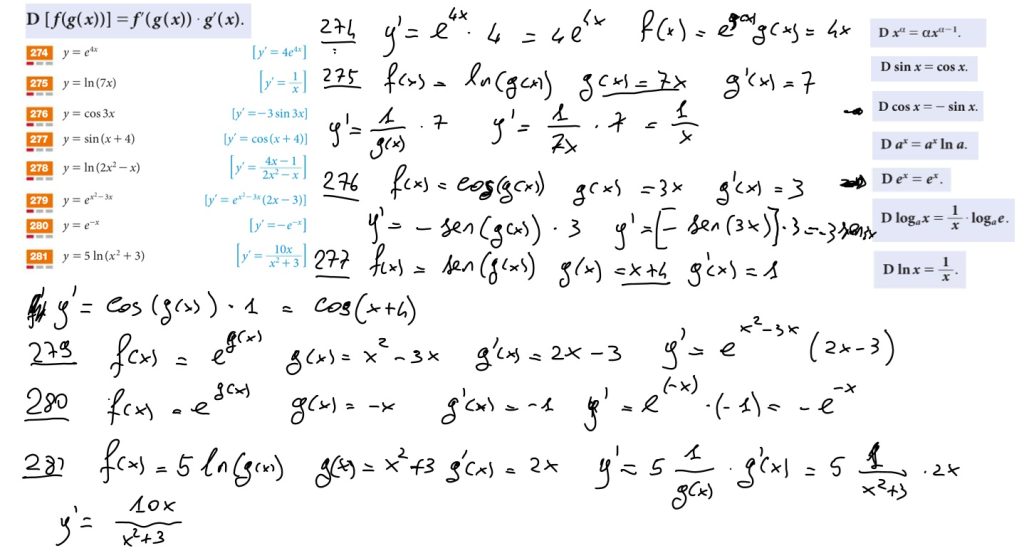 D [f(g(x))] = f'(g(x)) · g'(x).
274 y = e^{4x} [y' = 4e^{4x}]
275 y = ln(7x) [y' = \frac{1}{x}]
276 y = cos 3x [y' = −3 sin 3x]
277 y = sin(x + 4) [y' = cos(x + 4)]
278 y = ln(2x² − x) [y' = \frac{4x − 1}{2x² − x}]
279 y = e^{x² − 3x} [y' = e^{x² − 3x}(2x − 3)]
280 y = e^{−x} [y' = −e^{−x}]
281 y = 5 ln(x² + 3) [y' = \frac{10x}{x² + 3}]
274 y' = e^{4x} · 4 = 4e^{4x} f(x) = e^{g(x)} g(x) = 4x
275 f(x) = ln(g(x)) g(x) = 7x g'(x) = 7
y' = \frac{1}{g(x)} · 7 y' = \frac{1}{7x} · 7 = \frac{1}{x}
276 f(x) = cos(g(x)) g(x) = 3x g'(x) = 3
y' = − sen(g(x)) · 3 y' = [− sen(3x)] · 3 = −3 sen 3x
277 f(x) = sen(g(x)) g(x) = x+4 g'(x) = 1
y' = cos(g(x)) · 1 = cos(x+4)
279 f(x) = e^{g(x)} g(x) = x² − 3x g'(x) = 2x − 3 y' = e^{x² − 3x} (2x − 3)
280 f(x) = e^{g(x)} g(x) = −x g'(x) = −1 y' = e^{(−x)} · (−1) = − e^{−x}
281 f(x) = 5 ln(g(x)) g(x) = x² + 3 g'(x) = 2x y' = 5 \frac{1}{g(x)} · g'(x) = 5 \frac{1}{x² + 3} · 2x
y' = \frac{10x}{x² + 3}
D x^α = αx^{α−1}.
D sin x = cos x.
D cos x = − sin x.
D a^x = a^x ln a.
D e^x = e^x.
D log_a x = \frac{1}{x} · log_a e.
D ln x = \frac{1}{x}.